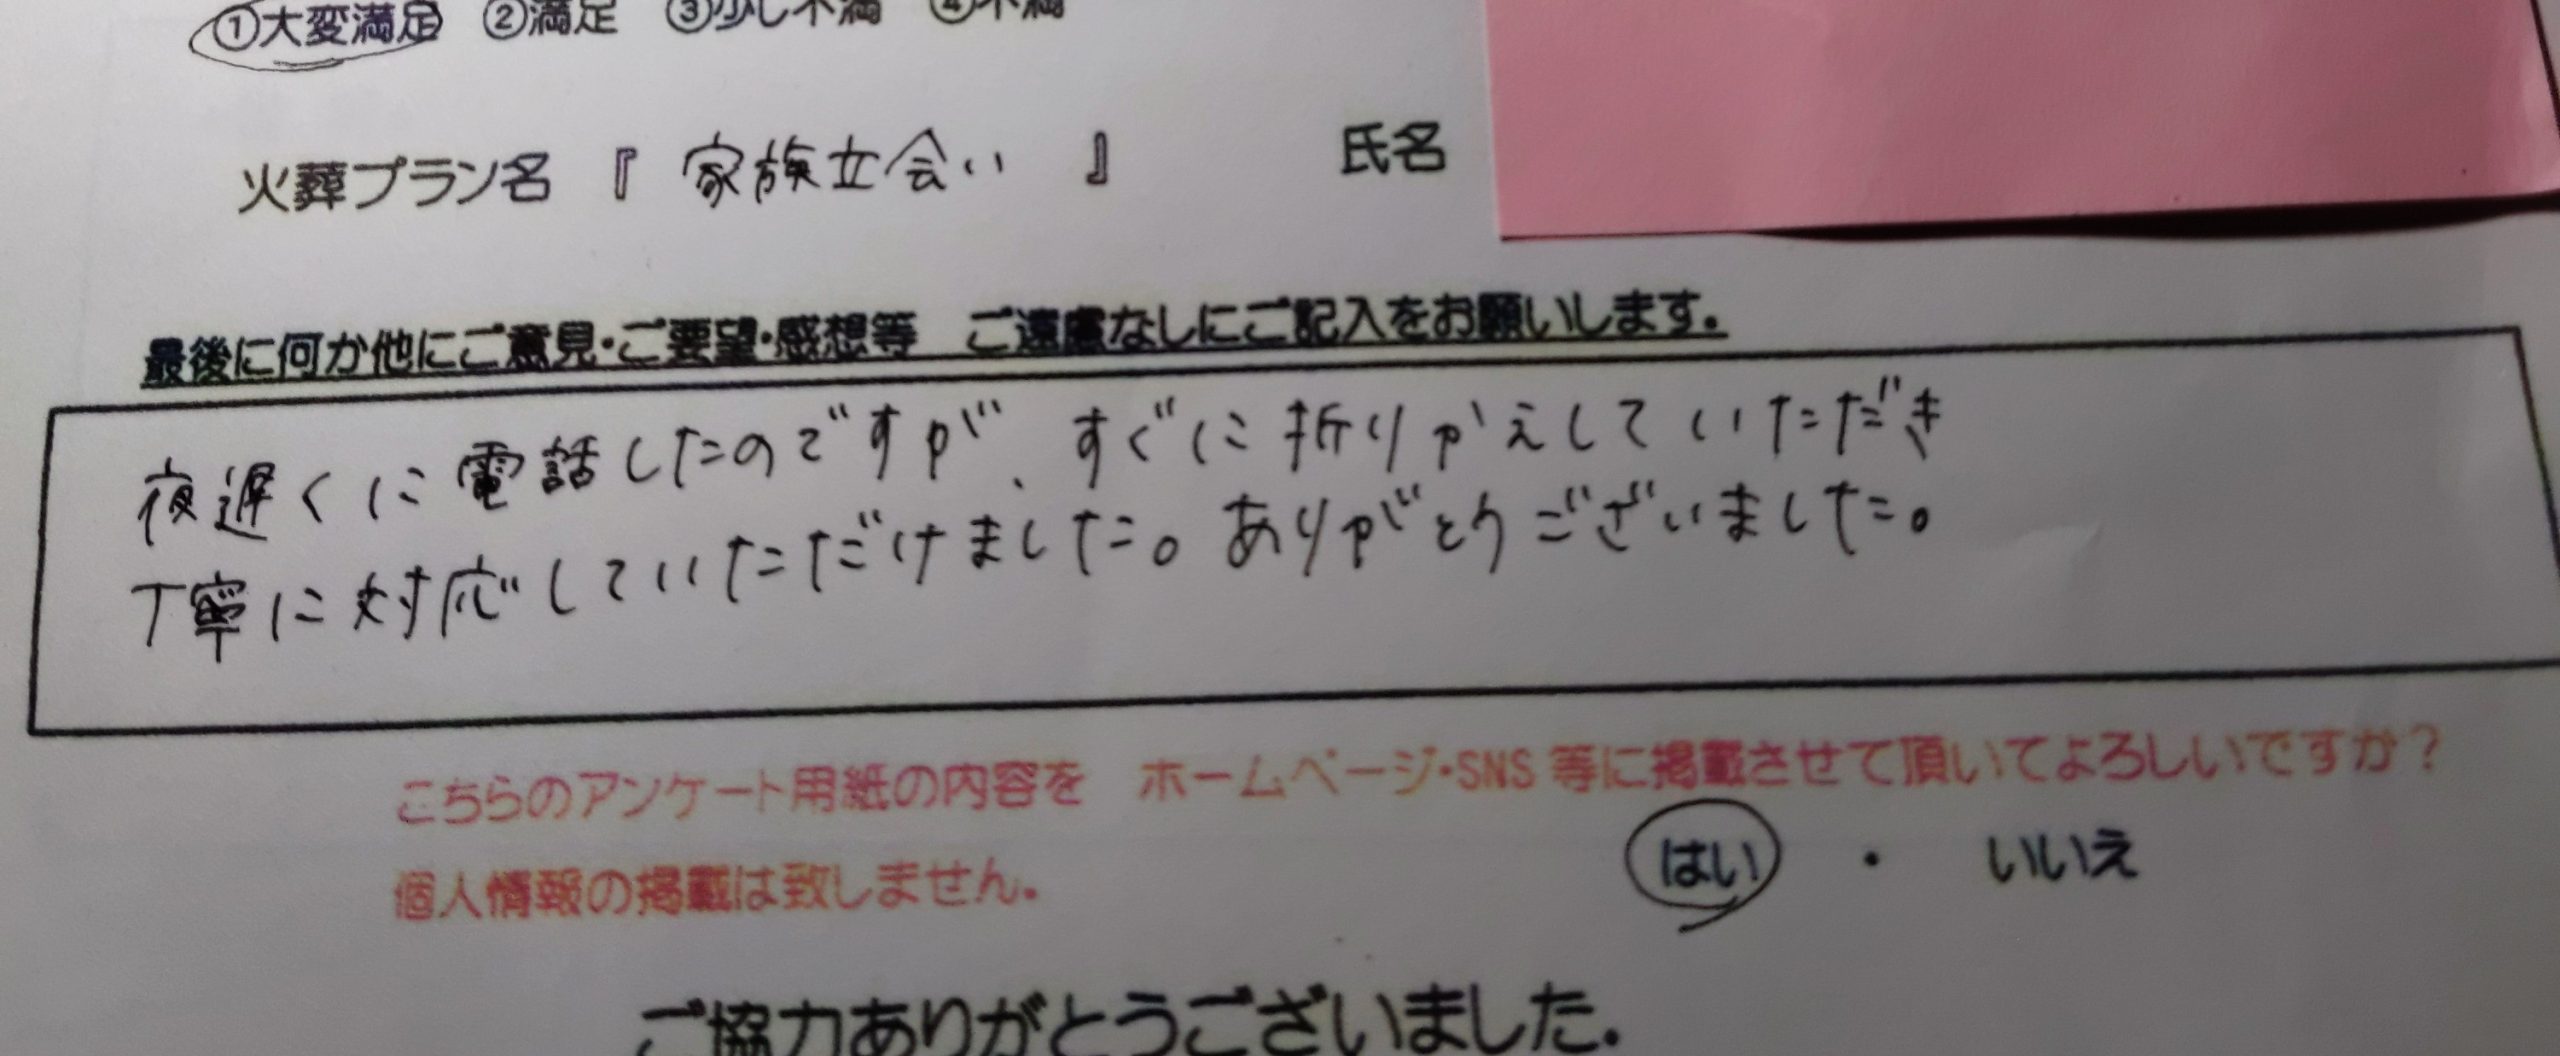 ①大変満足 ②満足 ③少し不満 ④不満
火葬プラン名 『 家族立会い 』 氏名
最後に何か他にご意見・ご要望・感想等 ご遠慮なしにご記入をお願いします。
夜遅くに電話したのですが、すぐに折りかえしていただき
丁寧に対応していただけました。ありがとうございました。
こちらのアンケート用紙の内容を ホームページ・SNS 等に掲載させて頂いてよろしいですか？
はい ・ いいえ
個人情報の掲載は致しません。
ご協力ありがとうございました。